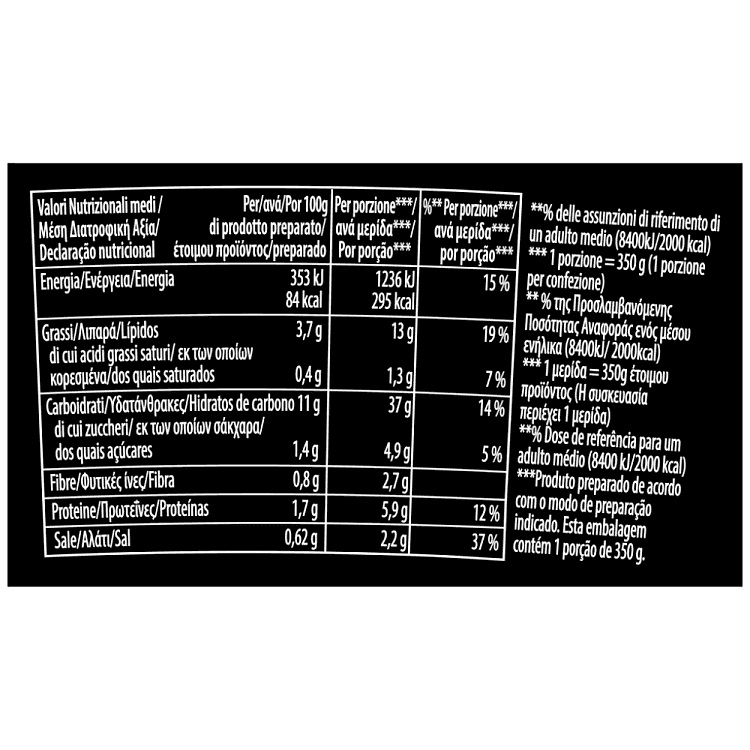 Valori Nutrizionali medi / Per/ανά/Por 100g Per porzione***/ %** Per porzione***/
Μέση Διατροφική Αξία/ di prodotto preparato/ ανά μερίδα***/ ανά μερίδα***/
Declaração nutricional έτοιμου προϊόντος/preparado Por porção*** por porção***
Energia/Ενέργεια/Energia 353 kJ 1236 kJ 15 %
84 kcal 295 kcal
Grassi/Λιπαρά/Lípidos 3,7 g 13 g 19 %
di cui acidi grassi saturi/ εκ των οποίων
κορεσμένα/dos quais saturados 0,4 g 1,3 g 7 %
Carboidrati/Υδατάνθρακες/Hidratos de carbono 11 g 37 g 14 %
di cui zuccheri/ εκ των οποίων σάκχαρα/
dos quais açúcares 1,4 g 4,9 g 5 %
Fibre/Φυτικές ίνες/Fibra 0,8 g 2,7 g
Proteine/Πρωτεΐνες/Proteínas 1,7 g 5,9 g 12 %
Sale/Αλάτι/Sal 0,62 g 2,2 g 37 %
**% delle assunzioni di riferimento di
un adulto medio (8400kJ/2000 kcal)
*** 1 porzione = 350 g (1 porzione
per confezione)
** % της Προσλαμβανόμενης
Ποσότητας Αναφοράς ενός μέσου
ενήλικα (8400kJ/ 2000kcal)
*** 1 μερίδα = 350g έτοιμου
προϊόντος (Η συσκευασία
περιέχει 1 μερίδα)
**% Dose de referência para um
adulto médio (8400 kJ/2000 kcal)
***Produto preparado de acordo
com o modo de preparação
indicado. Esta embalagem
contém 1 porção de 350 g.